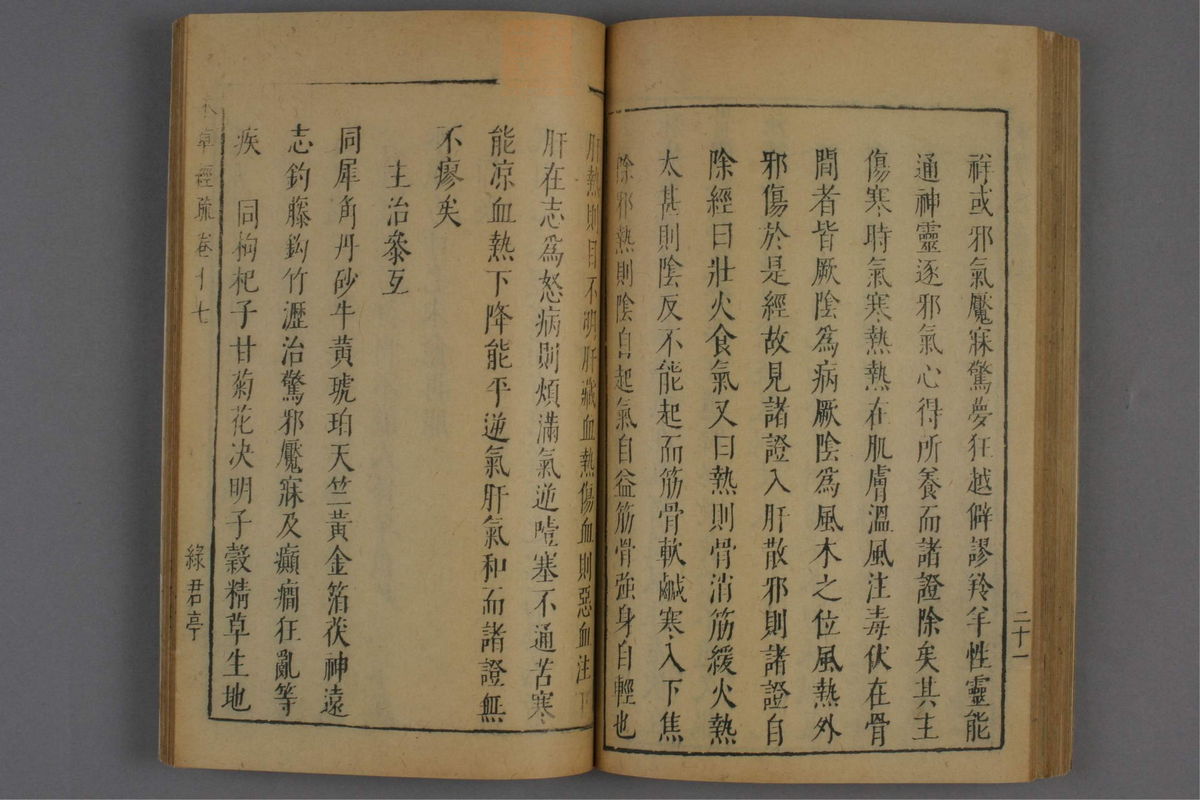 祥或邪氣魘寐驚夢狂越僻謬羚羊性靈能
通神靈逐邪氣心得所養而諸證除矣其主
傷寒時氣寒熱熱在肌膚溫風注毒伏在骨
間者皆厥陰爲病厥陰爲風木之位風熱外
邪傷於是經故見諸證入肝散邪則諸證自
除經曰壯火食氣又曰熱則骨消筋緩火熱
太甚則陰反不能起而筋骨軟鹹寒入下焦
除邪熱則陰自起氣自益筋骨強身自輕也
二十一
肝熱則目不明肝藏血熱傷血則惡血注下
肝在志爲怒病則煩滿氣逆噎塞不通苦寒
能凉血熱下降能平逆氣肝氣和而諸證無
不瘳矣
主治叅互
同犀角丹砂牛黃琥珀天竺黃金箔茯神遠
志釣藤鈎竹瀝治驚邪魘寐及癲癎狂亂等
疾　同枸杞子甘菊花決明子穀精草生地
本草經疏卷十七
綠君亭